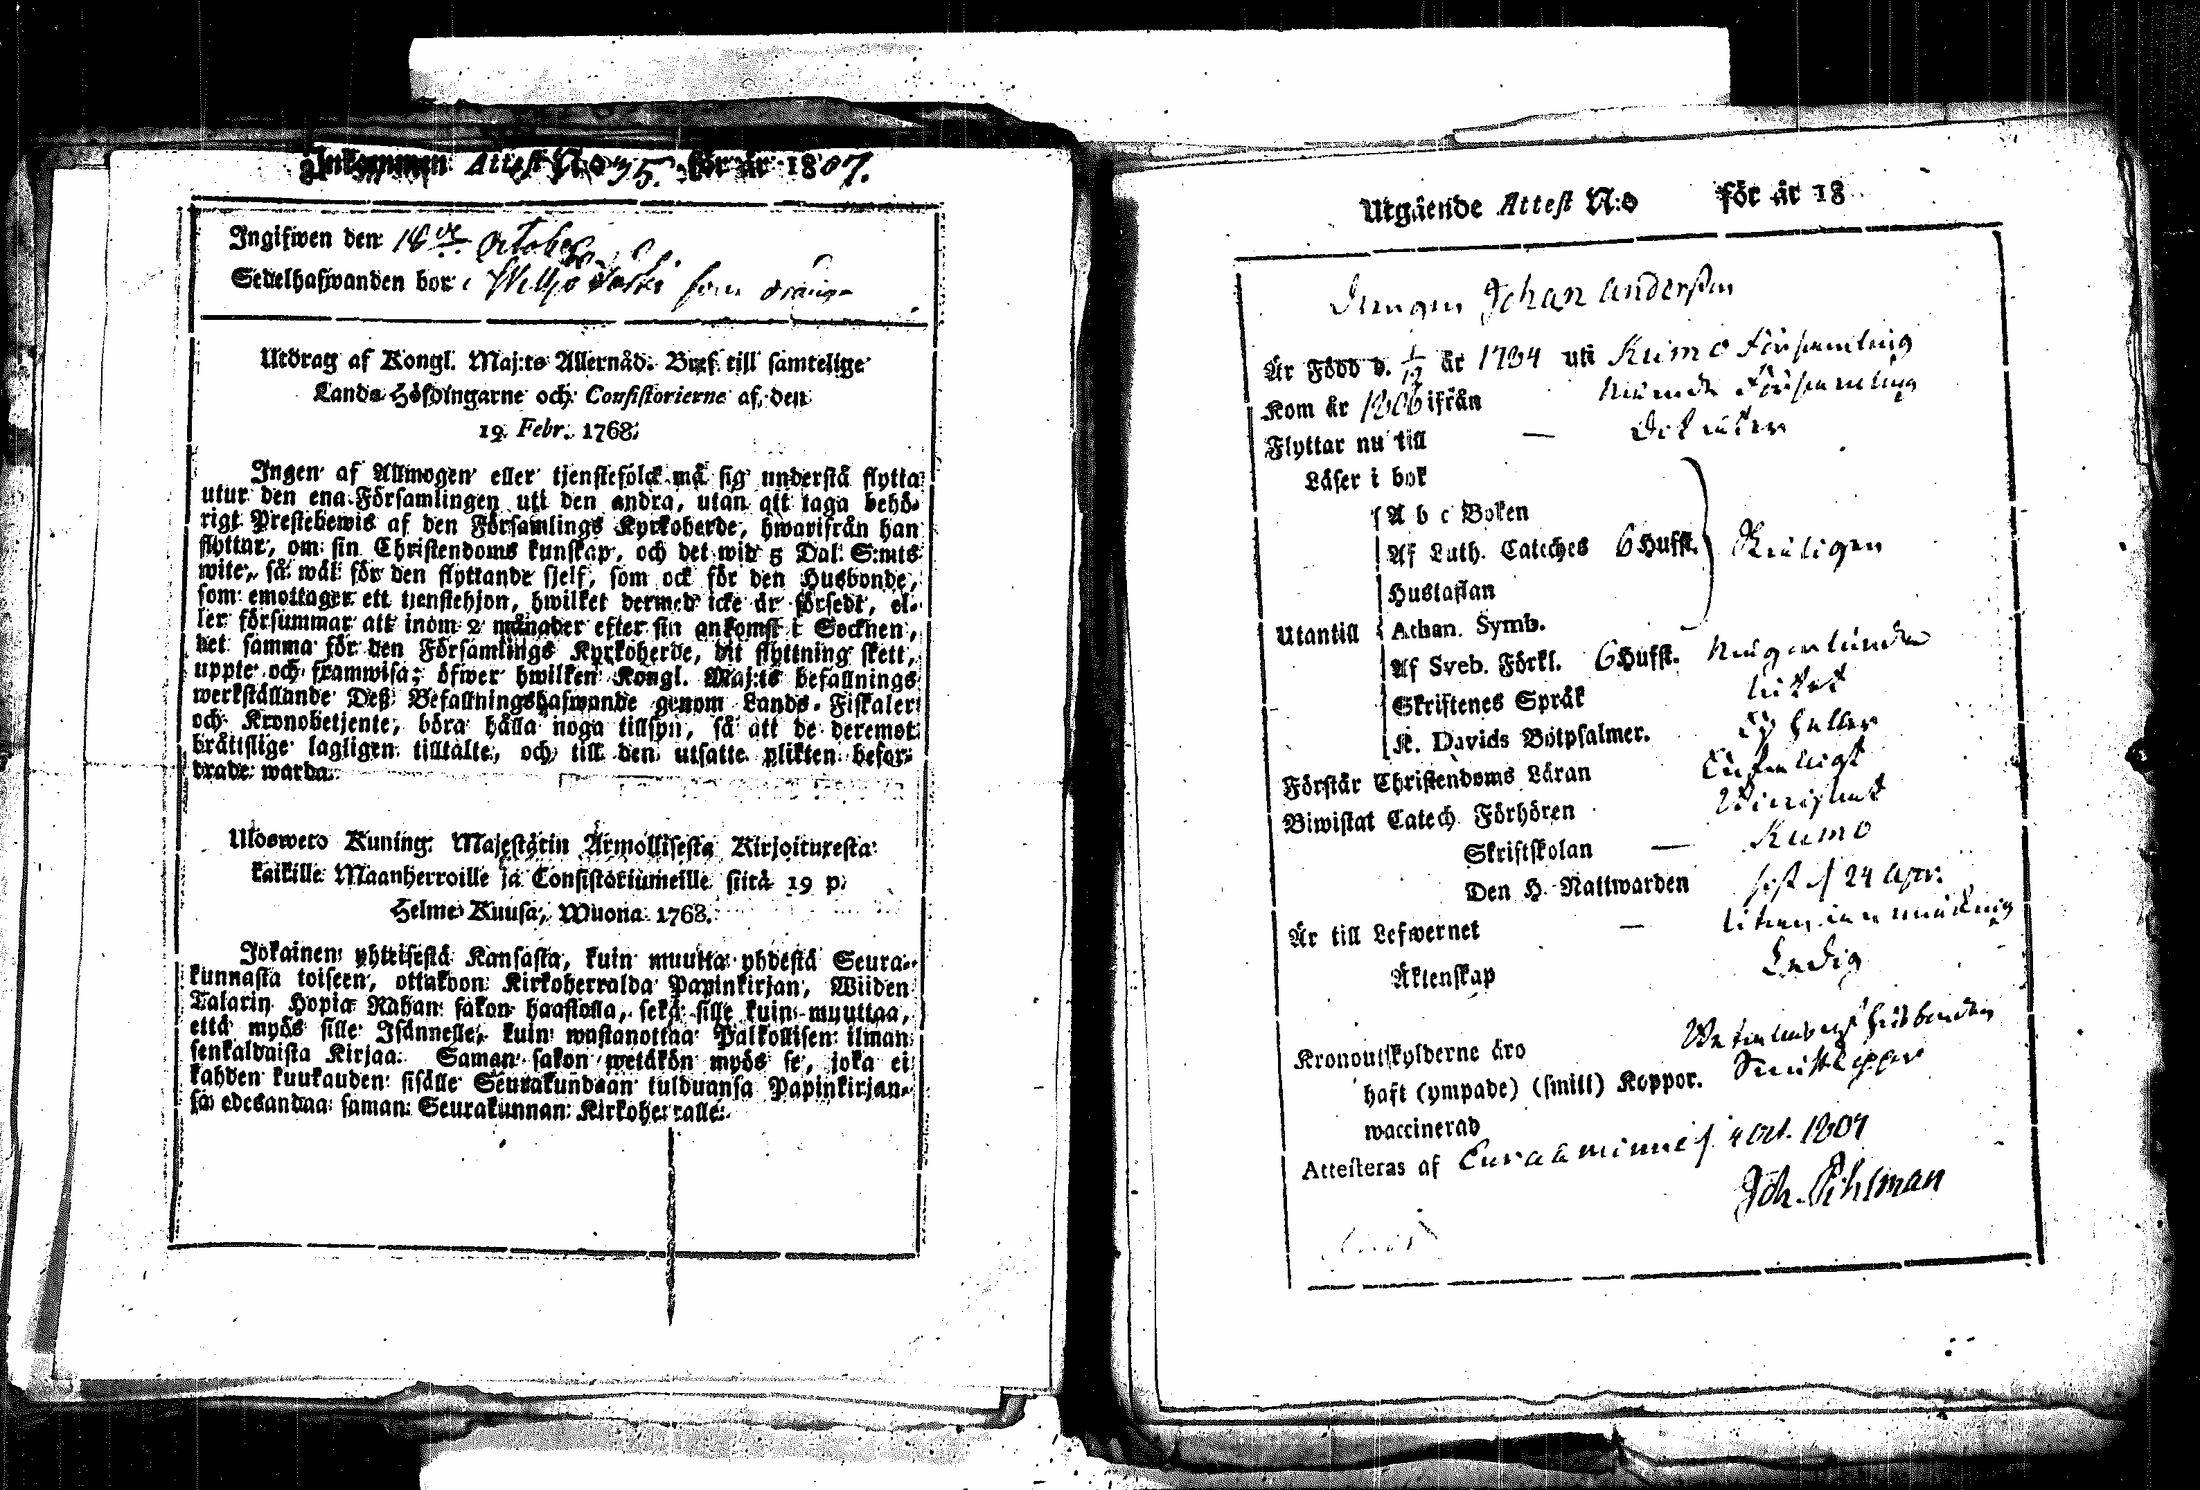 Inkommen Attest N:o 35. för år 1807.
Ingifwen den 18de October
Sedelhafwanden bor i som dräng
Utdrag af Kongl. Maj:ts Allernåd. Bref till samtelige
Lands-Höfdingarne och Consistorierne af den
19. Febr. 1768.
Ingen af Allmogen eller tjenstefolck må sig understå flytta
utur den ena Församlingen uti den andra, utan att taga behö-
rigt Prestebewis af den Församlings Kyrkoherde, hwarifrån han
flyttar, om sin Christendoms kunskap, och det wid 5 Dal. S:mts
wite, så wäl för den flyttande sjelf, som ock för den Husbonde,
som emottager ett tjenstehjon, hwilket dermed icke är försedt, el-
ler försummar att inom 2 månader efter sin ankomst i Socknen,
det samma för den Församlings Kyrkoherde, dit flyttning skett,
uppte och framwisa; öfwer hwilken Kongl. Maj:ts befallnings
werkställande Deß Befallningshafwande genom Lands-Fiskaler
och Kronobetjente, böra hålla noga tillsyn, så att de deremot
bråttslige lagligen tilltalte, och till den utsatte plikten befor-
drade warda.
Ulosweto Kuning. Majestätin Armollisesta Kirjoituxesta
kaikille Maanherroille ja Consistoriumeille siitä 19 p.
Helme Kuusa, Wuona 1768.
Jokainen yhteisestä Kansasta, kuin muutta yhdestä Seura-
kunnasta toiseen, ottakoon Kirkoherralda Papinkirjan, Wiiden
Talarin Hopia Rahan sakon haastolla, sekä sille kuin muuttaa,
että myös sille Isännelle, kuin wastanottaa Palkollisen ilman
senkaldaista Kirjaa. Saman sakon wetäkön myös se, joka ei
kahden kuukauden sisälle Seurakundaan tulduansa Papinkirjan-
sa edesandaa saman Seurakunnan Kirkoherralle.
Utgående Attest N:o för år 18
Drengen Johan Andersson
Är Född d. 1/12 år 1784 uti Kumo Församling
Kom år 1806 ifrån nämde Församling
Flyttar nu till — Dit åter
Läser i bok
A b c Boken
Af Luth. Cateches 6 Hufst. Redigen
Hustaflan
Utantill Athan. Symb.
Af Sveb. Förkl. 6 Hufst. någorlunda
Skriftenes Språk litet
K. Davids Botpsalmer. Ej heller
Förstår Christendoms Läran
Biwistat Catech. Förhören
Skriftskolan — Kumo
Den H. Nattwarden sist d 24 Apr.
Är till Lefwernet — utan anmärkning
Äktenskap Ledig
Kronoutskylderne äro
haft (ympade) (smitt) Koppor. Smittkoppor
waccinerad
Attesteras af Euraåminne d 4 Oct. 1807
Joh. Pihlman